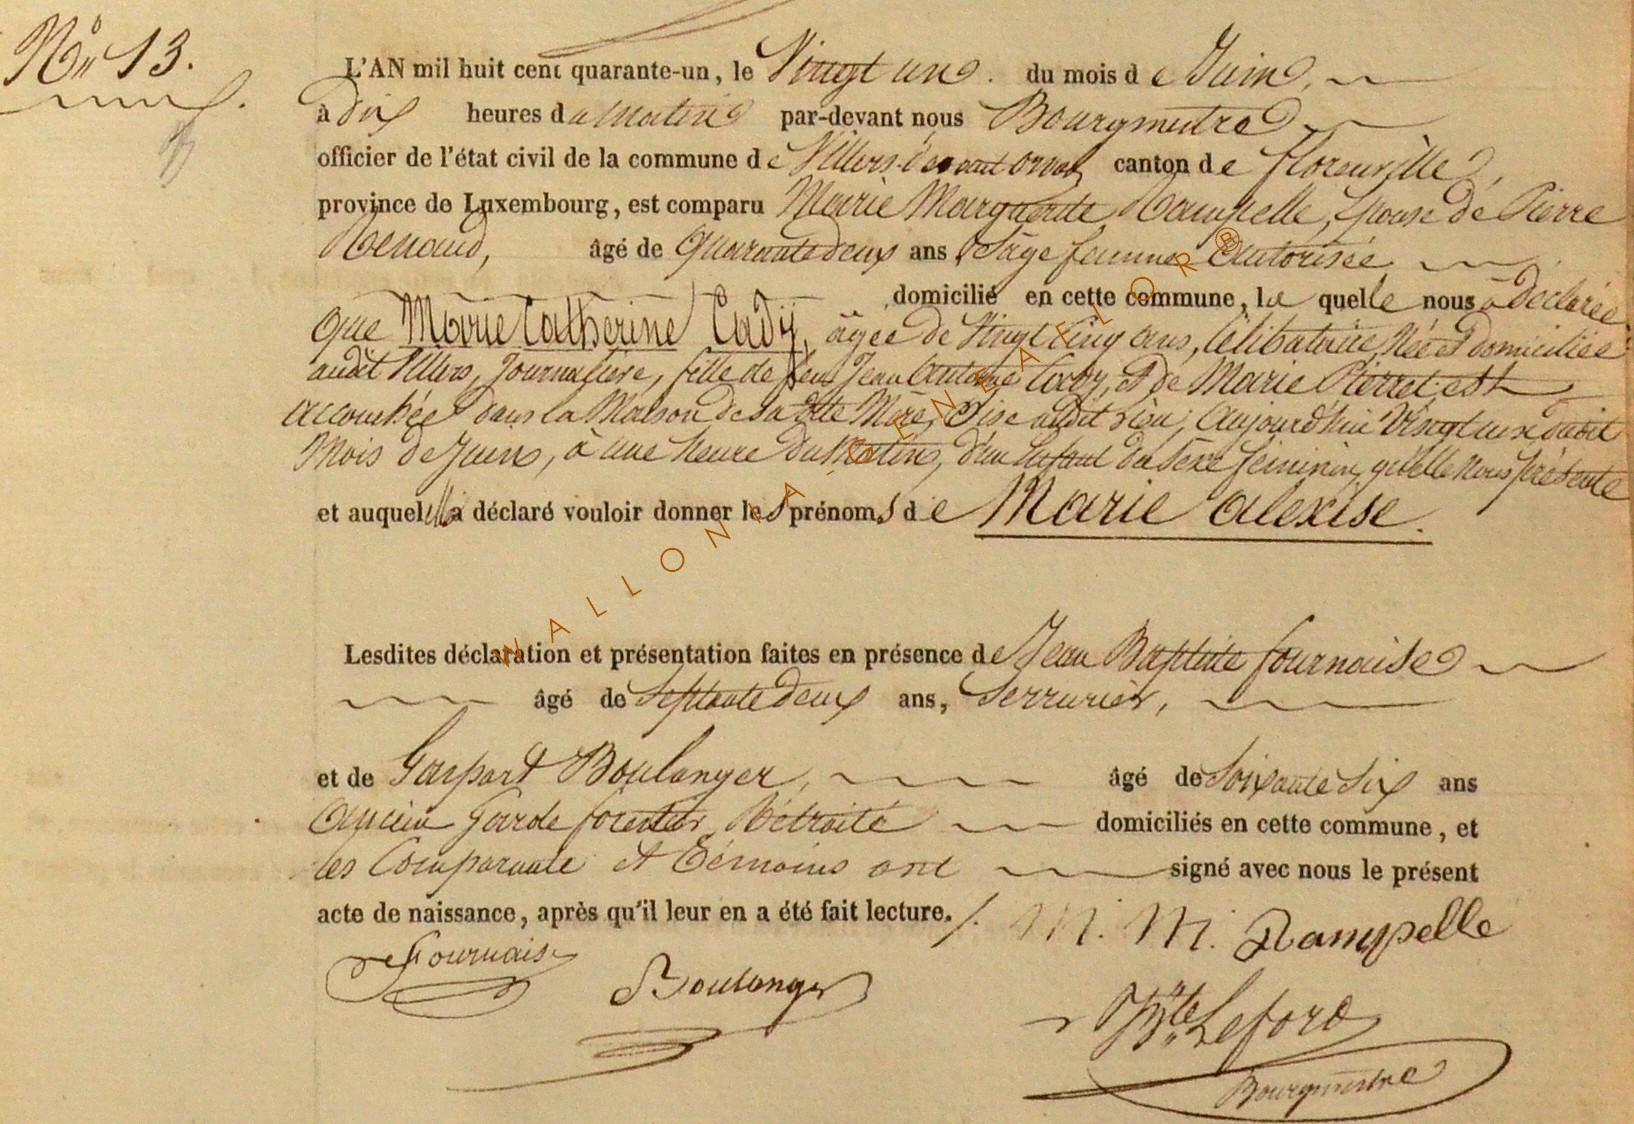 N° 13.
L'AN mil huit cent quarante-un, le Vingt un. du mois de Juin,
à dix heures du matin par-devant nous Bourgmestre
officier de l'état civil de la commune de Villers-devant orval canton de florenville,
province de Luxembourg, est comparu Marie Marguerite Rampelle, épouse de Pierre
Renaud, âgé de quarante deux ans, Sage femme Autorisée
domicilié en cette commune, laquelle nous à déclarée
que Marie Catherine Cady, âgée de Vingt Cinq ans, Célibataire, Née et domiciliée
audit Villers, Journalière, fille de feu Jean Antoine Cady, et de Marie Pierret, est
accouchée dans la Maison de sa dite Mère, Sise audit Lieu, Aujourd'hui Vingt un dudit
Mois de Juin, à une heure du Matin, d'un Enfant du Sexe féminin, qu'elle nous présente
et auquel elle a déclaré vouloir donner les prénoms de Marie Alexise.
Lesdites déclaration et présentation faites en présence de Jean Baptiste fournaise
âgé de Septante deux ans, Serrurier,
et de Gaspart Boulanger, âgé de Soixante Six ans
Ancien Garde forestier Rétraité domiciliés en cette commune, et
les Comparante et Témoins ont signé avec nous le présent
acte de naissance, après qu'il leur en a été fait lecture. /.
M. M. Rampelle
Fournaise
Boulanger
Bte Leford
Bourgmestre
WALLONIA GENEAFLOR ®